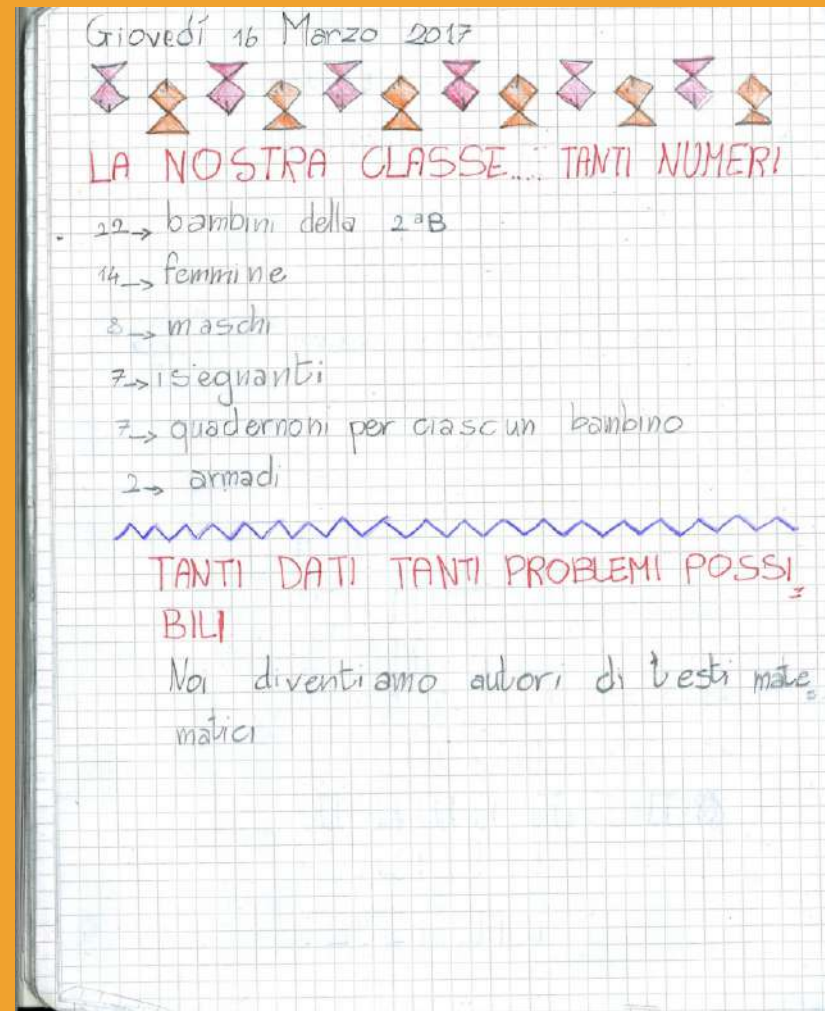 Giovedí 16 Marzo 2017
LA NOSTRA CLASSE.... TANTI NUMERI
22→ bambini della 2ªB
14→ femmine
8→ maschi
7→ isegnanti
7→ quadernoni per ciascun bambino
2→ armadi
TANTI DATI TANTI PROBLEMI POSSI
BILI
Noi diventiamo autori di testi mate
matici